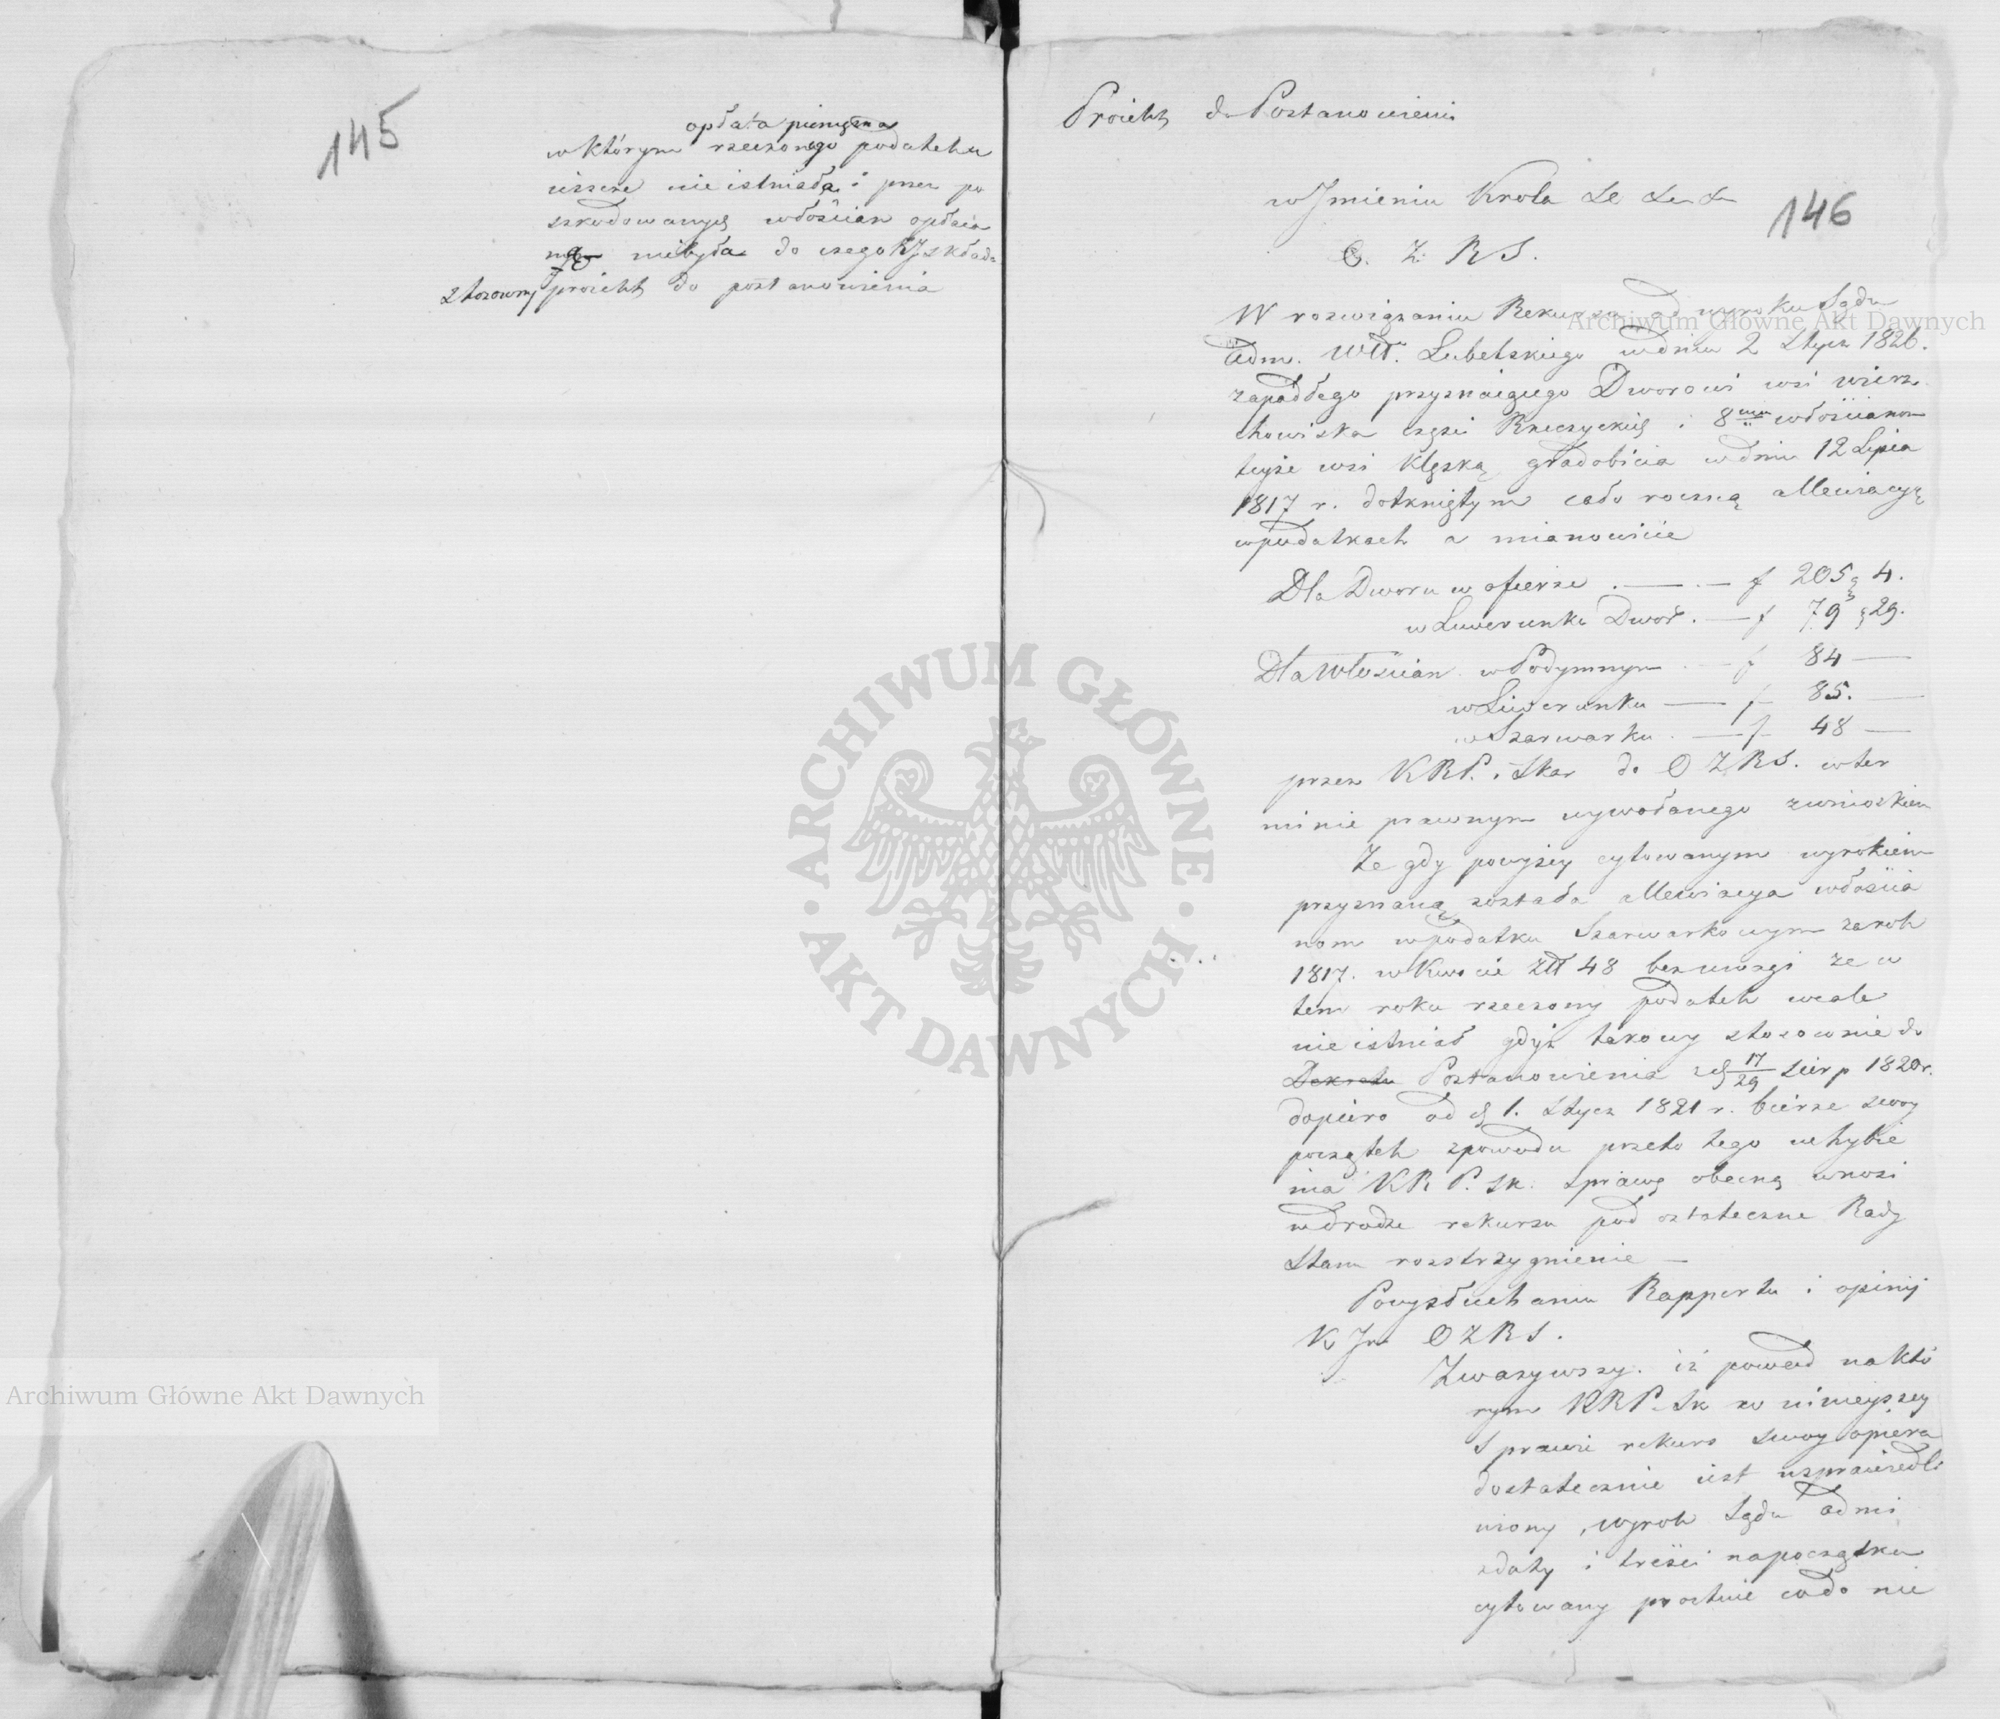 145
opłata pieniężna
w którym rzeczonego podatku
ieszcze nie istniała i przez po
szkodowanych włościan opłaca
ną niebyła do czego KJ składa
stosowny proiekt do postanowienia
Proiekt do Postanowienia
146
w Imieniu Krola &c &c &c
O. Z. R S.
W rozwiązaniu Rekursu od wyroku Sądu
Adm. Wdt. Lubelskiego w dniu 2 Stycz 1826.
zapadłego przyznaiącego Dworowi wsi Wierz
chowiska części Rzeczyckiey i 8miu włościanom
teyże wsi klęską gradobicia w dniu 12 Lipca
1817 r. dotkniętym cało roczną allewiacyę
w podatkach a mianowicie
Dla Dworu w ofierze . — . — f 205 g 4.
w Liwerunku Dwor. — f 79 g 29.
Dla Włościan w Podymnym . — f 84 —
w Liwerunku — f 85. —
w Szarwarku . — f 48 —
przez KRP. i Skar do O Z RS. w ter
minie prawnym wywołanego z wnioskiem
Że gdy powyżey cytowanym wyrokiem
przyznaną została allewiacya włościa
nom w podatku Szarwarkowym za rok
1817. w kwocie złt 48 bez uwagi że w
tem roku rzeczony podatek wcale
nie istniał gdyż takowy stosownie do
Dekretu Postanowienia z d 17/29 Sierp 1820 r.
dopiero od d 1. Stycz 1821 r. bierze swoy
początek z powodu przeto tego uchybie
nia KR P. Sk. sprawę obecną wnosi
w drodze rekursu pod ostateczne Rady
Stanu rozstrzygnienie —
Po wysłuchaniu Rapportu i opinij
K J O Z R S.
Zważywszy. iż powód na któ
rym KRP. Sk w ninieyszey
Sprawie rekurs swoy opiera
dostatecznie iest usprawiedli
wiony, wyrok Sądu admi
z daty i treści na początku
cytowany prostuie co do nie
Archiwum Główne Akt Dawnych
Archiwum Główne Akt Dawnych
· ARCHIWUM GŁÓWNE · AKT DAWNYCH